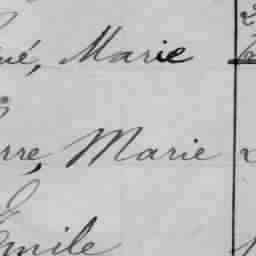 ué, Marie
rre, Marie
Emile